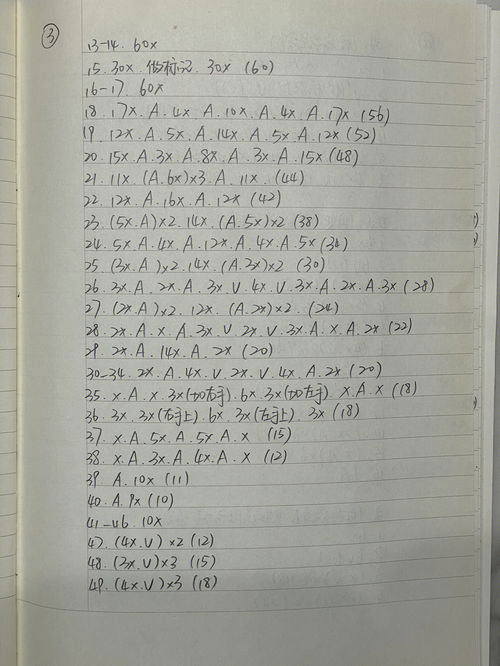 ③
13-14. 60x
15. 30x. 做标记. 30x (60)
16-17. 60x
18. 17x. A. 4x. A. 10x. A. 4x. A. 17x (56)
19. 12x. A. 5x. A. 14x. A. 5x. A. 12x (52)
20. 15x. A. 3x. A. 8x. A. 3x. A. 15x (48)
21. 11x. (A. 6x)x3. A. 11x. (44)
22. 12x. A. 16x. A. 12x (42)
23. (5x. A)x2. 14x. (A. 5x)x2 (38)
24. 5x. A. 4x. A. 12x. A. 4x. A. 5x (34)
25. (3x. A)x2. 14x. (A. 3x)x2 (30)
26. 3x. A. 2x. A. 3x. V. 4x. V. 3x. A. 2x. A. 3x (28)
27. (2x. A)x2. 12x. (A. 2x)x2. (24)
28. 2x. A. x. A. 3x. V. 2x. V. 3x. A. x. A. 2x (22)
29. 2x. A. 14x. A. 2x (20)
30-34. 2x. A. 4x. V. 2x. V. 4x. A. 2x (20)
35. x. A. x. 3x(加右手). 6x. 3x(加左手) x. A. x (18)
36. 3x. 3x(右手上). 6x. 3x(左手上). 3x (18)
37. x. A. 5x. A. 5x. A. x (15)
38. x. A. 3x. A. 4x. A. x (12)
39. A. 10x (11)
40. A. 9x (10)
41-46. 10x
47. (4x. V) x2 (12)
48. (3x. V)x3 (15)
49. (4x. V)x3 (18)